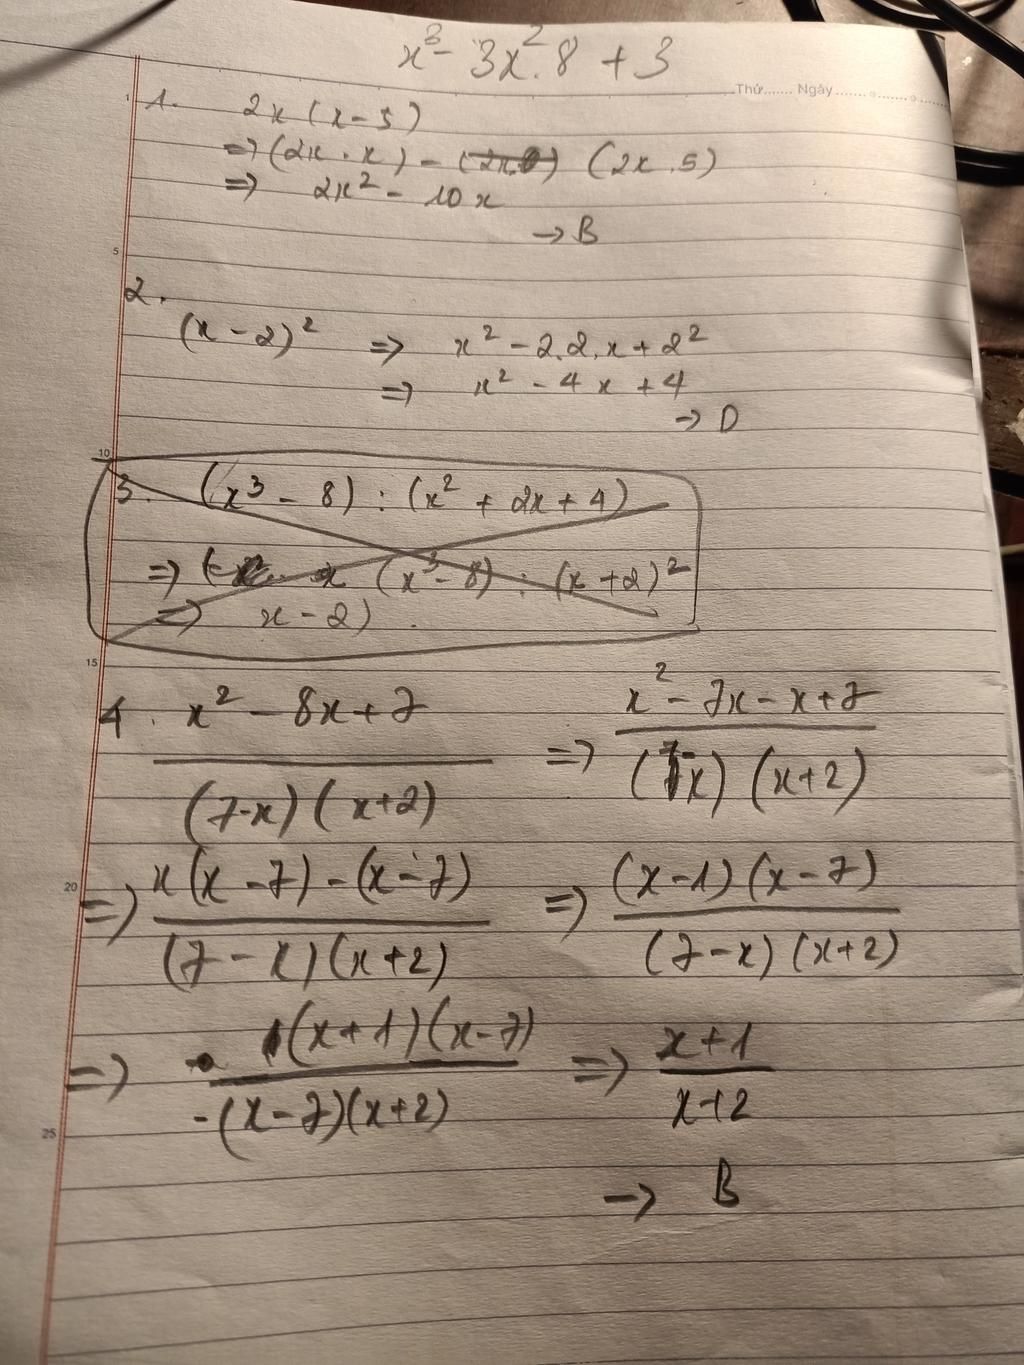 x³ - 3x². 8 + 3
Thứ....... Ngày
1. 2x (x - 5)
=> (2x . x) - (2x . 5)
=> 2x² - 10x
→ B
5
2.
(x - 2)² => x² - 2.2.x + 2²
=> x² - 4x + 4
→ D
10
3. (x³ - 8) : (x² + 2x + 4)
=> (x³ - 8) : (x + 2)²
=> x - 2)
15
4. x² - 8x + 7 / (7-x) (x+2) => x² - 7x - x + 7 / (7-x) (x+2)
20
=> x(x - 7) - (x - 7) / (7 - x) (x+2) => (x - 1) (x - 7) / (7 - x) (x+2)
=> (x + 1) (x - 7) / -(x - 7)(x+2) => x + 1 / x + 2
25
→ B